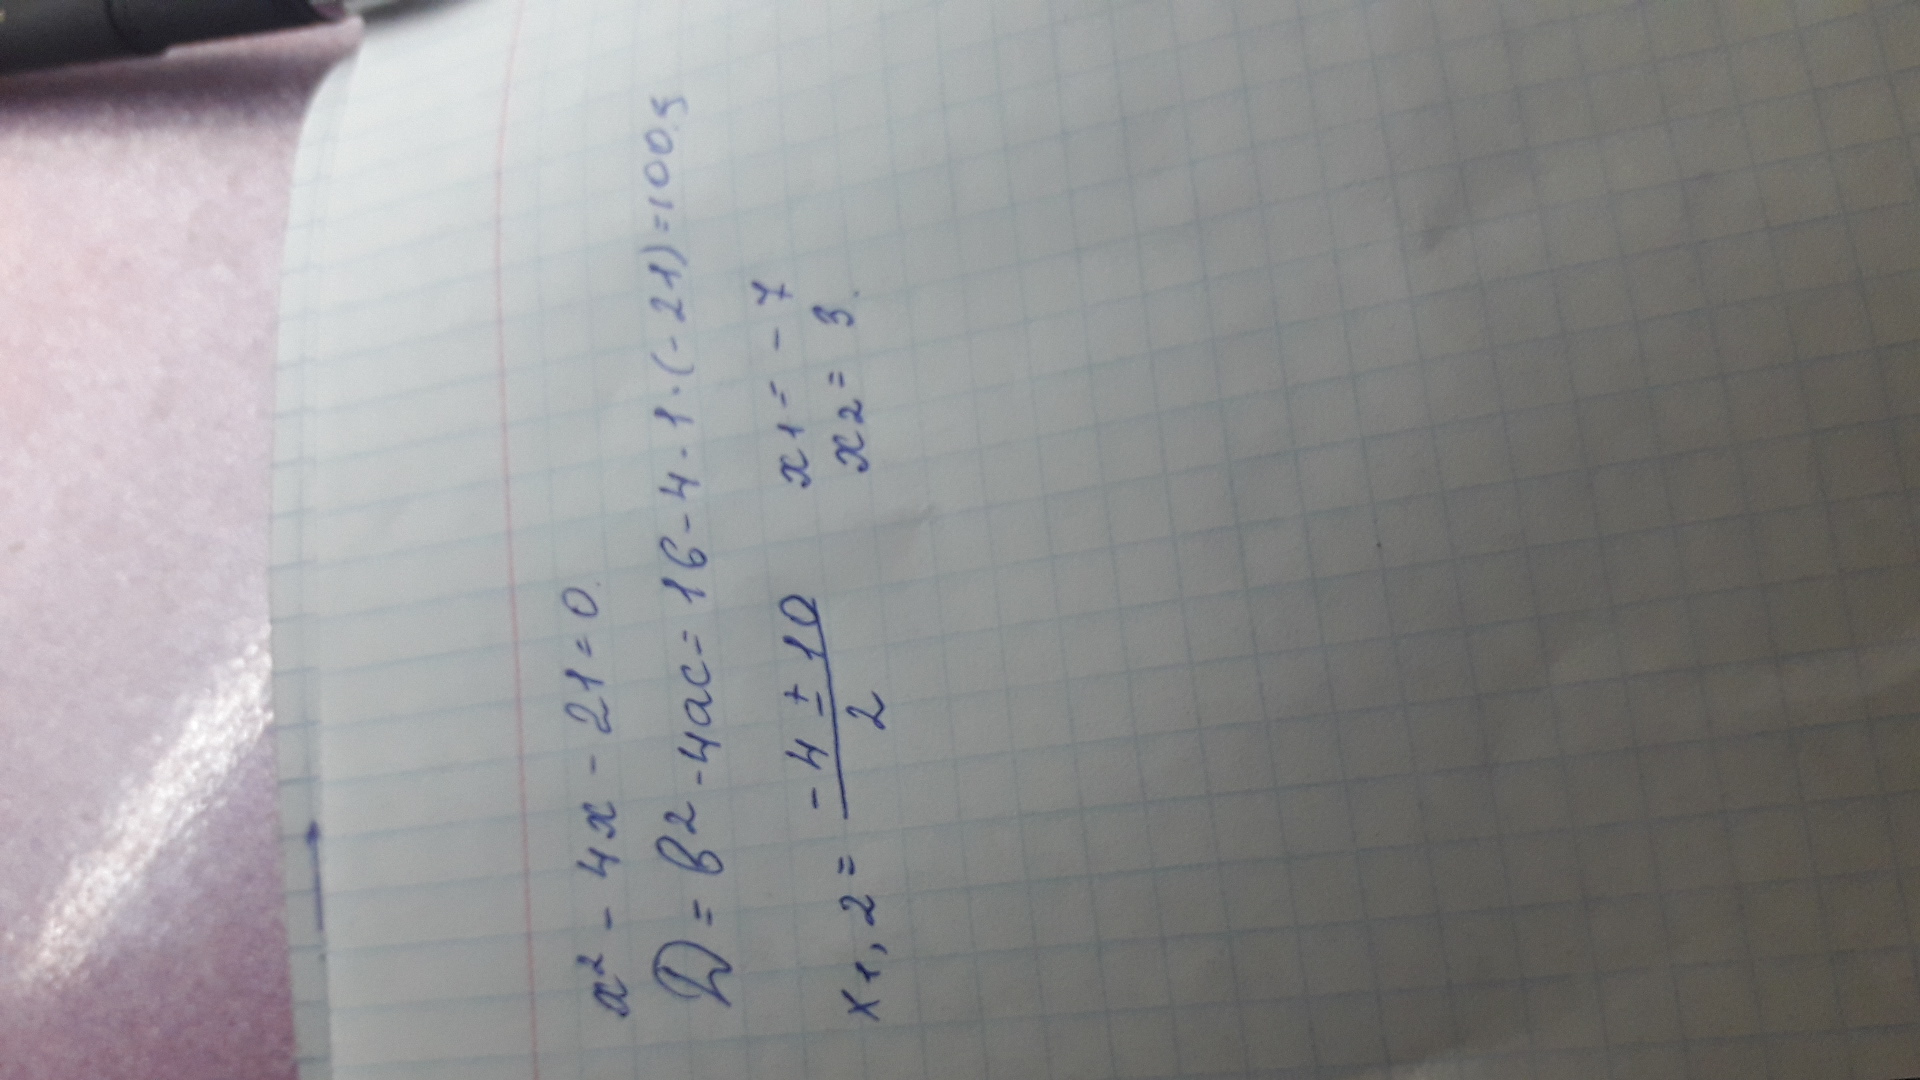 x² - 4x - 21 = 0.
D = b2 - 4ac = 16 - 4 · 1 · (-21) = 100.
x1,2 = (-4 ± 10)/2 x1 = -7
x2 = 3.